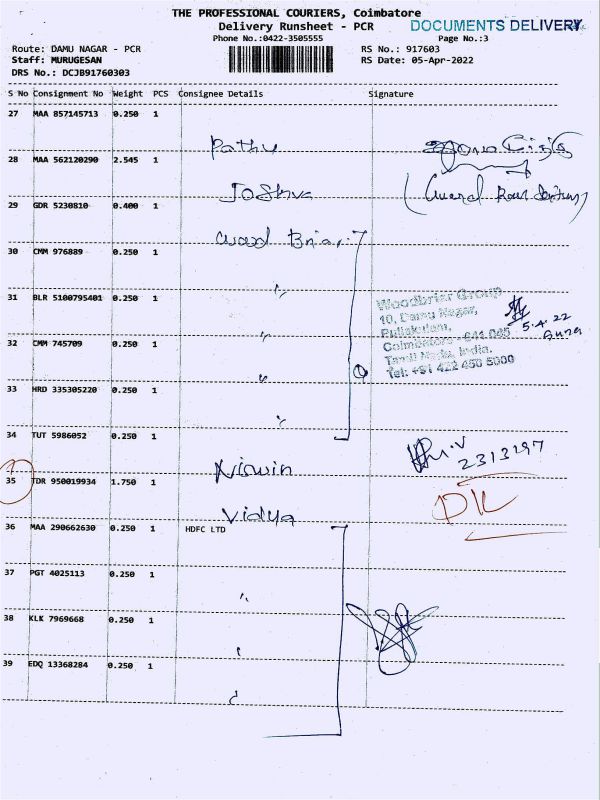 THE PROFESSIONAL COURIERS, Coimbatore
Delivery Runsheet - PCR
DOCUMENTS DELIVERY
Phone No.:0422-3505555
Page No.:3
Route: DAMU NAGAR - PCR
RS No.: 917603
Staff: MURUGESAN
RS Date: 05-Apr-2022
DRS No.: DCJB91760303
S No Consignment No Weight PCS Consignee Details Signature
27 MAA 857145713 0.250 1
Pathy
28 MAA 562120290 2.545 1
Joshva
29 GDR 5230810 0.400 1
30 CMM 976889 0.250 1
31 BLR 5100795401 0.250 1
Woodbriar Group
10, Damu Nagar,
Puliakulam,
Coimbatore - 641 045
Tamil Nadu, India.
Tel: +91 422 450 5000
5.4.22
32 CMM 745709 0.250 1
33 HRD 335305220 0.250 1
34 TUT 5986052 0.250 1
Niswin
2313197
35 TDR 950019934 1.750 1
Vidya
36 MAA 290662630 0.250 1 HDFC LTD
37 PGT 4025113 0.250 1
38 KLK 7969668 0.250 1
39 EDQ 13368284 0.250 1